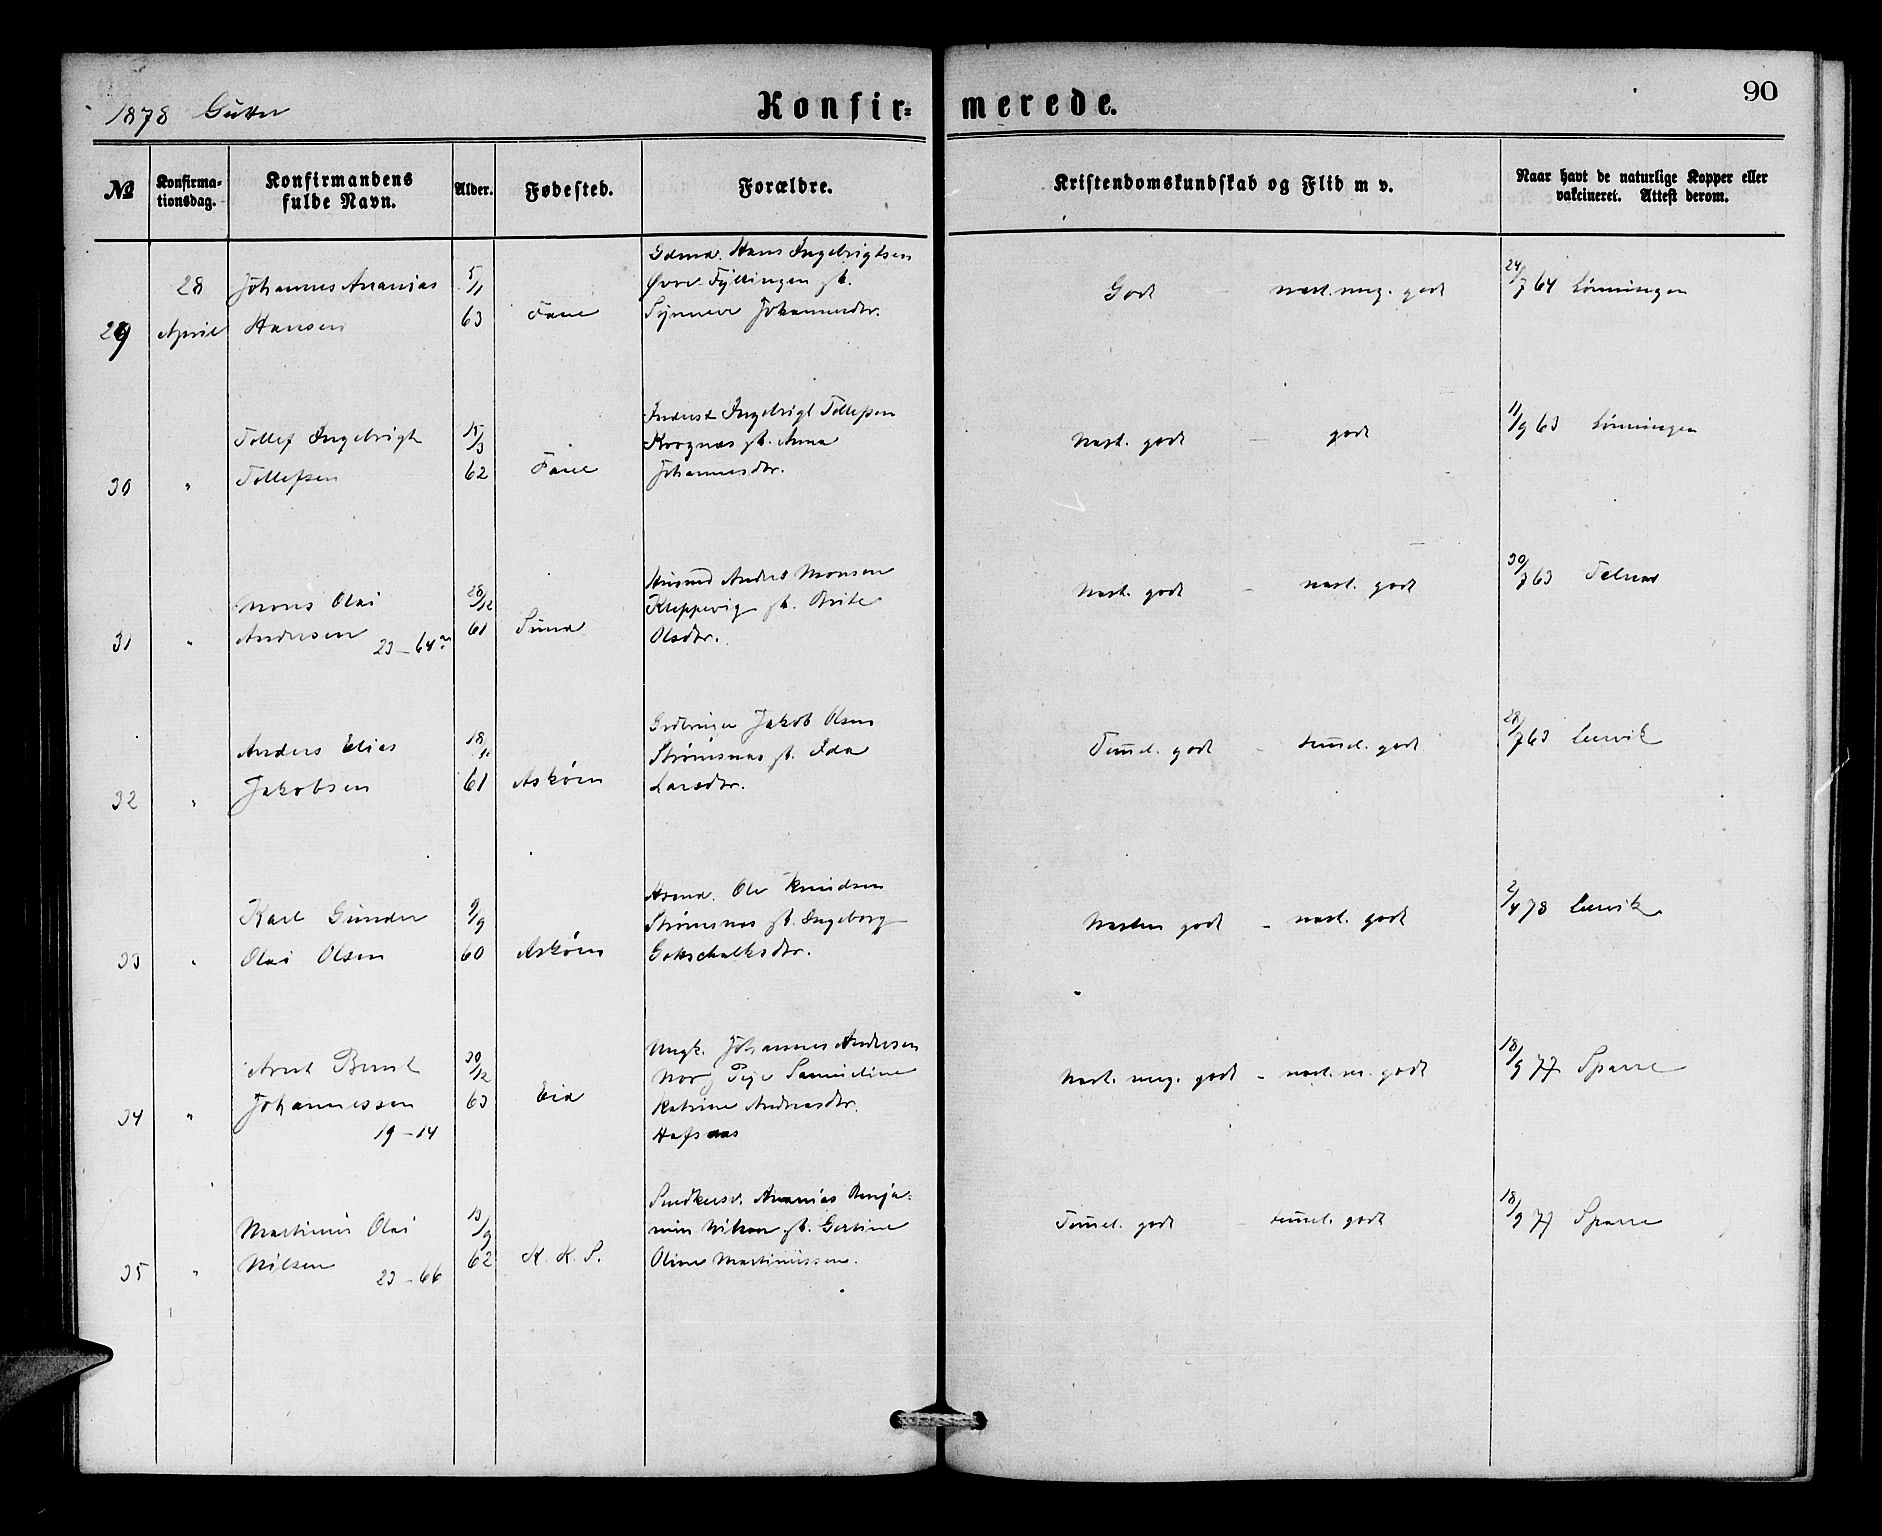 1878 Gutter
Konfir=merede.
90
No
Konfirma=
tionsdag.
Konfirmandens
fulde Navn.
Alder.
Fødested.
Forældre.
Kristendomskundskab og Flid m v.
Naar havt de naturlige Kopper eller
vakcineret. Attest derom.
29
28
April
Johannes Ananias
Hansen
5/11
63
Fane
Gdmd. Hans Ingebrigtsen
Øvre Fyllingen &
Synneve Johannesdtr.
Godt - næst. meg. godt
24/7 64 Lønningen
30
"
Tollef Ingebrigt
Tollefsen
15/3
62
Fane
Inderst Ingebrigt Tollefsen
Krognæs & Anna
Johannesdtr.
Næst. godt - godt
11/9 63 Lønningen
31
"
Mons Olai
Andersen 23-64
28/12
61
Sund
Husmd Anders Monsen
Kleppevig & Brite
Olsdtr.
Næst. godt - næst. godt
30/7 63
32
"
Anders Elias
Jakobsen
18/11
61
Askøen
Jakob Olsen
Strømsnæs & Ida
Larsdtr.
Temel. godt - temel. godt
28/7 63 Leervik
33
"
Karl Gunder
Olai Olsen
9/9
60
Askøen
Ole Knudsen
Strømsnæs & Ingeborg
Gotschalksdtr.
Næsten godt - næst. godt
2/4 78 Leervik
34
"
Arnt Bernt
Johannessen
19-14
30/12
63
Eid
Ungk. Johannes Andersen
Nor Pige Samueline
Katrine Andreasdtr.
Hafsaas
Næst. meg. godt - næst. m. godt
18/9 77 Sparre
35
"
Martinus Olai
Nilsen 23-66
13/9
62
K. K. S.
Snedkersv. Ananias Benja=
min Nilsen & Gertine
Oline Martinussen.
Temel. godt - temel. godt
18/9 77 Sparre